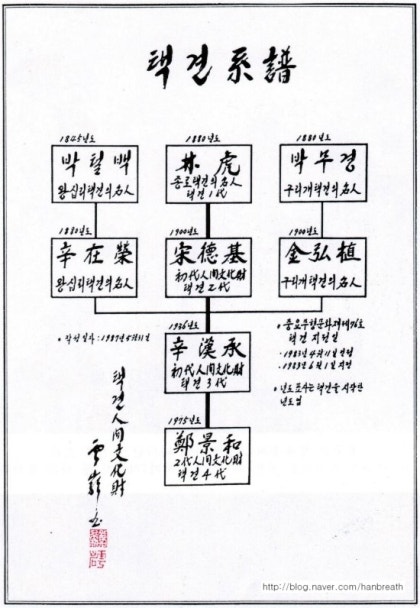 택견系譜
1845년도
박털백
왕십리택견의名人
1880년도
林虎
종로택견의名人
택견1代
1880년도
박무경
구리개택견의名人
1880년도
辛在榮
왕십리택견의名人
1900년도
宋德基
初代人间文化財
택견2代
1900년도
金弘植
구리개택견의名人
1936년도
辛漢承
初代人间文化財
택견3代
• 작성일자:1987년5月11日
• 중요무형문화재76호
택견 지정일
• 1983年6月1일 지정
• 년도표시는 택견을 시작한
년도임
1975년도
鄭景和
2代人间文化財
택견4代
택견人间文化財
http://blog.naver.com/hanbreath